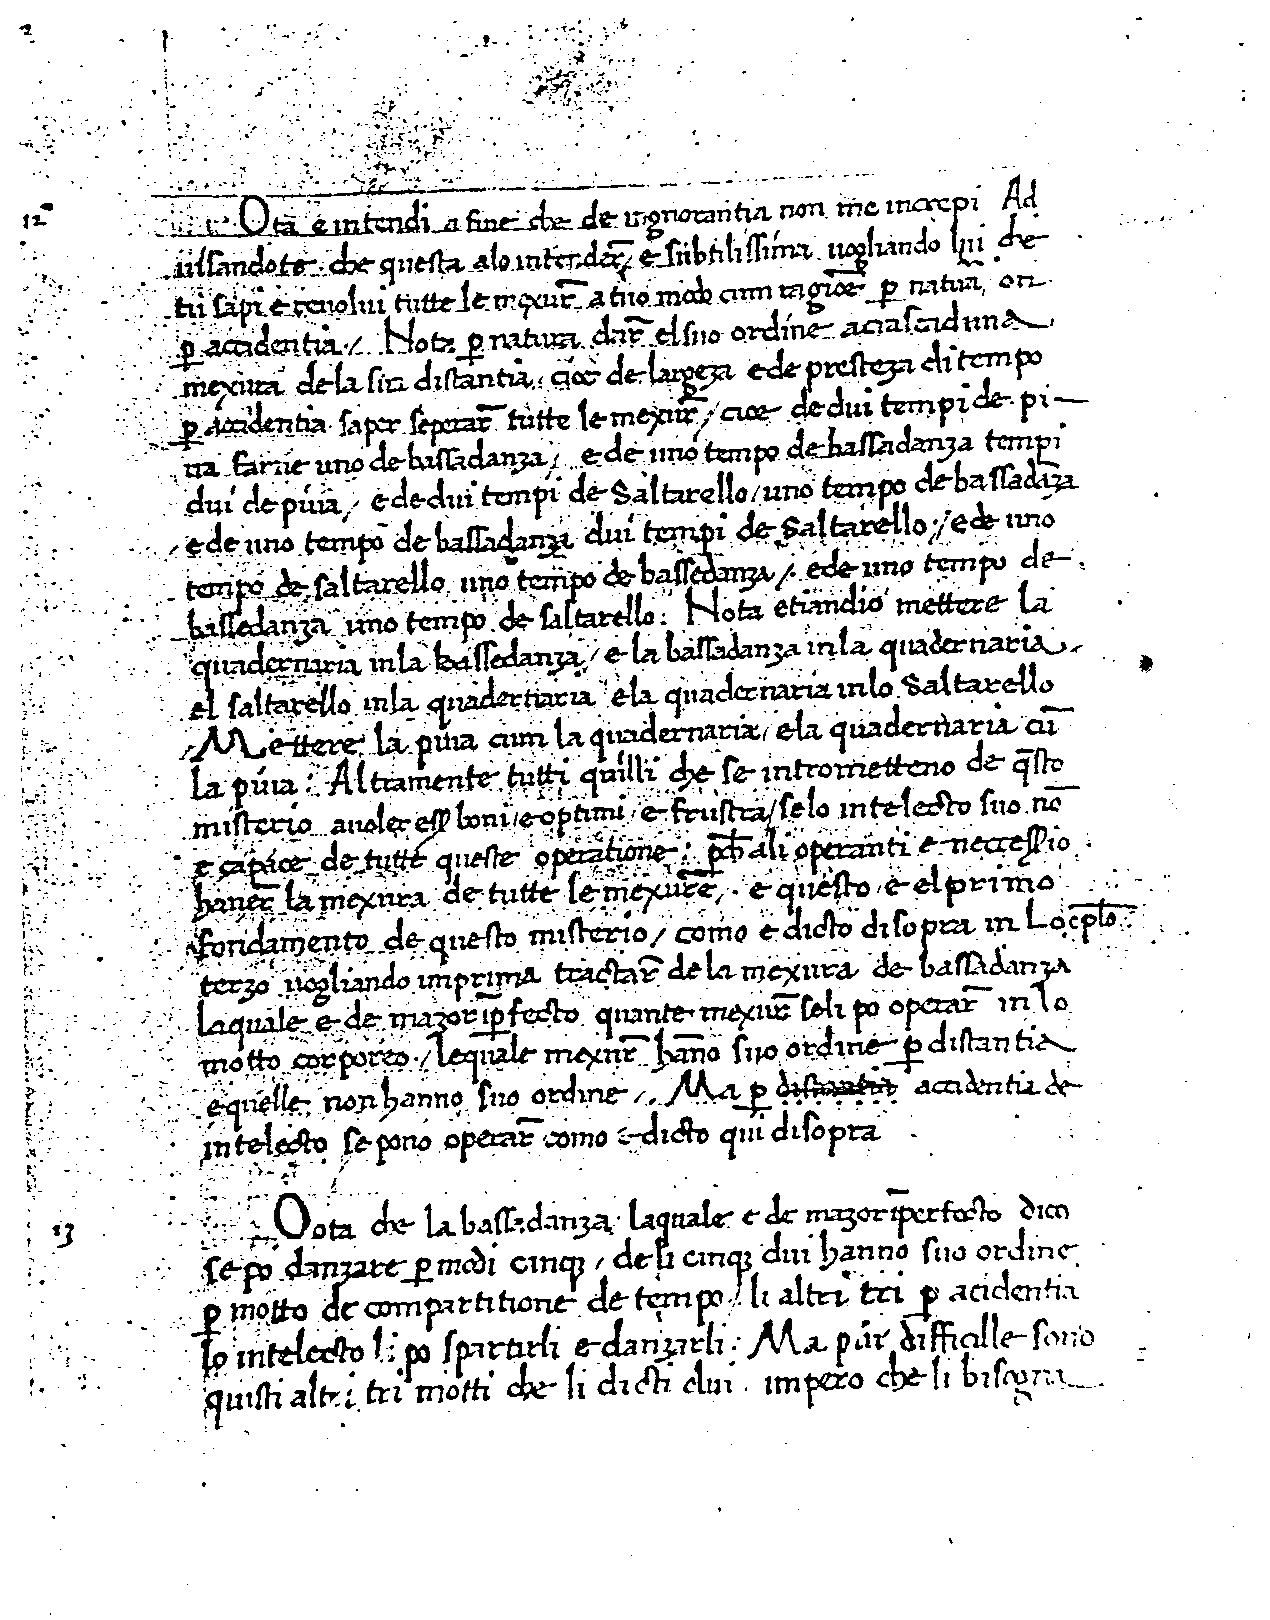 12
Ota e intendi a fine che de ingnorantia non me increpi Ad
uisandote che questa alo intendar̄ / e subtilissima uogliando lui che
tu sapi e reuolui tutte le mexur̄ a tuo modo cum ragiōe p̱ natura on
p̱ accidentia / Nota p̱ natura dar̄ el suo ordine aciascaduna
mexura de la sua distantia, cioe de largeza e de presteza di tempo
p̱ accidentia saper seperar̄ tutte le mexur̄ / cioe de dui tempi de pi
ua farne uno de bassadanza / e de uno tempo de bassadanza tempi
dui de piua / e de dui tempi de Saltarello / uno tempo de bassadāza
e de uno tempo de bassadanza dui tempi de Saltarello / e de uno
tempo de saltarello uno tempo de bassedanza / e de uno tempo de
bassedanza uno tempo de saltarello : Nota etiandio mettere la
quadernaria in la bassedanza / e la bassadanza in la quadernaria
el saltarello in la quadernaria e la quadernaria in lo Saltarello
Mettere la piua cum la quadernaria / e la quadernaria cū
la piua : Altramente tutti quilli che se intrometteno de q̄sto
misterio auoler ess̱ boni / e optimi / e frustra / se lo intelecto suo nō
e capace de tutte queste operatione : p̱ch ali operanti e necessio
hauer̄ la mexura de tutte le mexur̄e . e questo / e el primo
fondamento de questo misterio / como e dicto disopra in Lo cp̄lo
terzo uogliando imprima tractar̄ de la mexura de bassadanza
laquale e de mazor īp̱fecto quante mexur̄ se li po operar̄ in lo
motto corporeo / lequale mexur̄ hāno suo ordine p̱ distantia
e quelle non hanno suo ordine / . Ma p̱ distantia accidentia de
intelecto se pono operar̄ como e dicto qui disopra
13
Oota che la bassadanza laquale e de mazor īperfecto dico
se po danzare p̱ modi cinqꝫ / de li cinqꝫ dui hanno suo ordine
p̱ motto de compartitione de tempo / li altri tri p̱ acidentia
lo intelecto li po spartirli e danzarli : Ma pur difficille sono
quisti altri tri motti che li dicti dui . impero che li bisogna